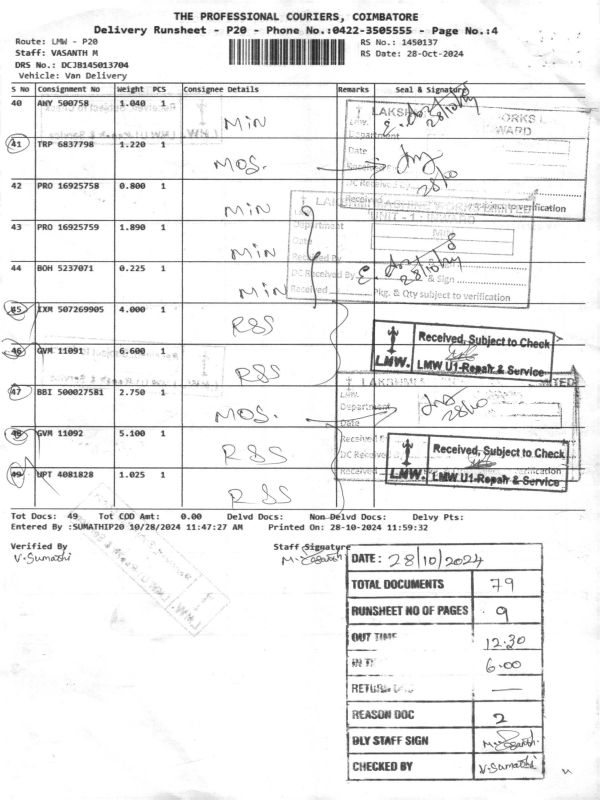 THE PROFESSIONAL COURIERS, COIMBATORE
Delivery Runsheet - P20 - Phone No.:0422-3505555 - Page No.:4
Route: LMW - P20 RS No.: 1450137
Staff: VASANTH M RS Date: 28-Oct-2024
DRS No.: DCJB145013704
Vehicle: Van Delivery
S No Consignment No Weight PCS Consignee Details Remarks Seal & Signature
40 ANY 500758 1.040 1 MIN
28/10/24
41 TRP 6837798 1.220 1 MOS.
28/10
42 PRO 16925758 0.800 1 MIN
43 PRO 16925759 1.890 1 MIN
28/10/24
44 BOH 5237071 0.225 1 MIN
Pkg. & Qty subject to verification
45 IXM 507269905 4.000 1 RSS
Received, Subject to Check
LMW. LMW U1-Repair & Service
46 GVM 11091 6.600 1 RSS
47 BBI 500027581 2.750 1 MOS.
28/10
48 GVM 11092 5.100 1 RSS
Received, Subject to Check
LMW. LMW U1-Repair & Service
49 UPT 4081828 1.025 1 RSS
Tot Docs: 49 Tot COD Amt: 0.00 Delvd Docs: Non Delvd Docs: Delvy Pts:
Entered By :SUMATHIP20 10/28/2024 11:47:27 AM Printed On: 28-10-2024 11:59:32
Verified By Staff Signature
V.Sumathi
DATE: 28/10/2024
TOTAL DOCUMENTS 79
RUNSHEET NO OF PAGES 9
OUT TIME 12.30
IN 6.00
RETURN —
REASON DOC 2
DLY STAFF SIGN
CHECKED BY V.Sumathi